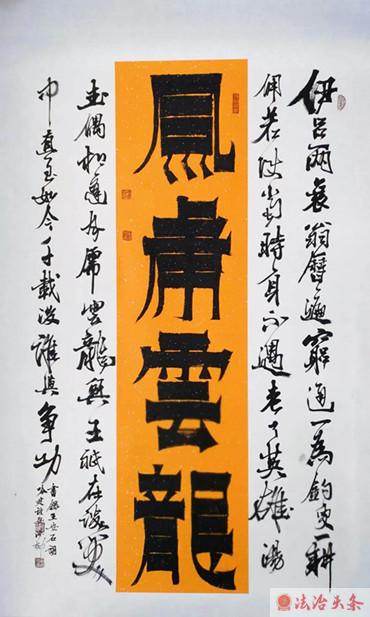 伊呂兩衰翁曆遍窮通一為釣叟一耕
佣若使當時身不遇老了英雄湯
鳳虎雲龍
武偶相逢風虎雲龍興王祇在談笑
中直至如今千載後誰與爭功
書錄王安石詞
法治头条